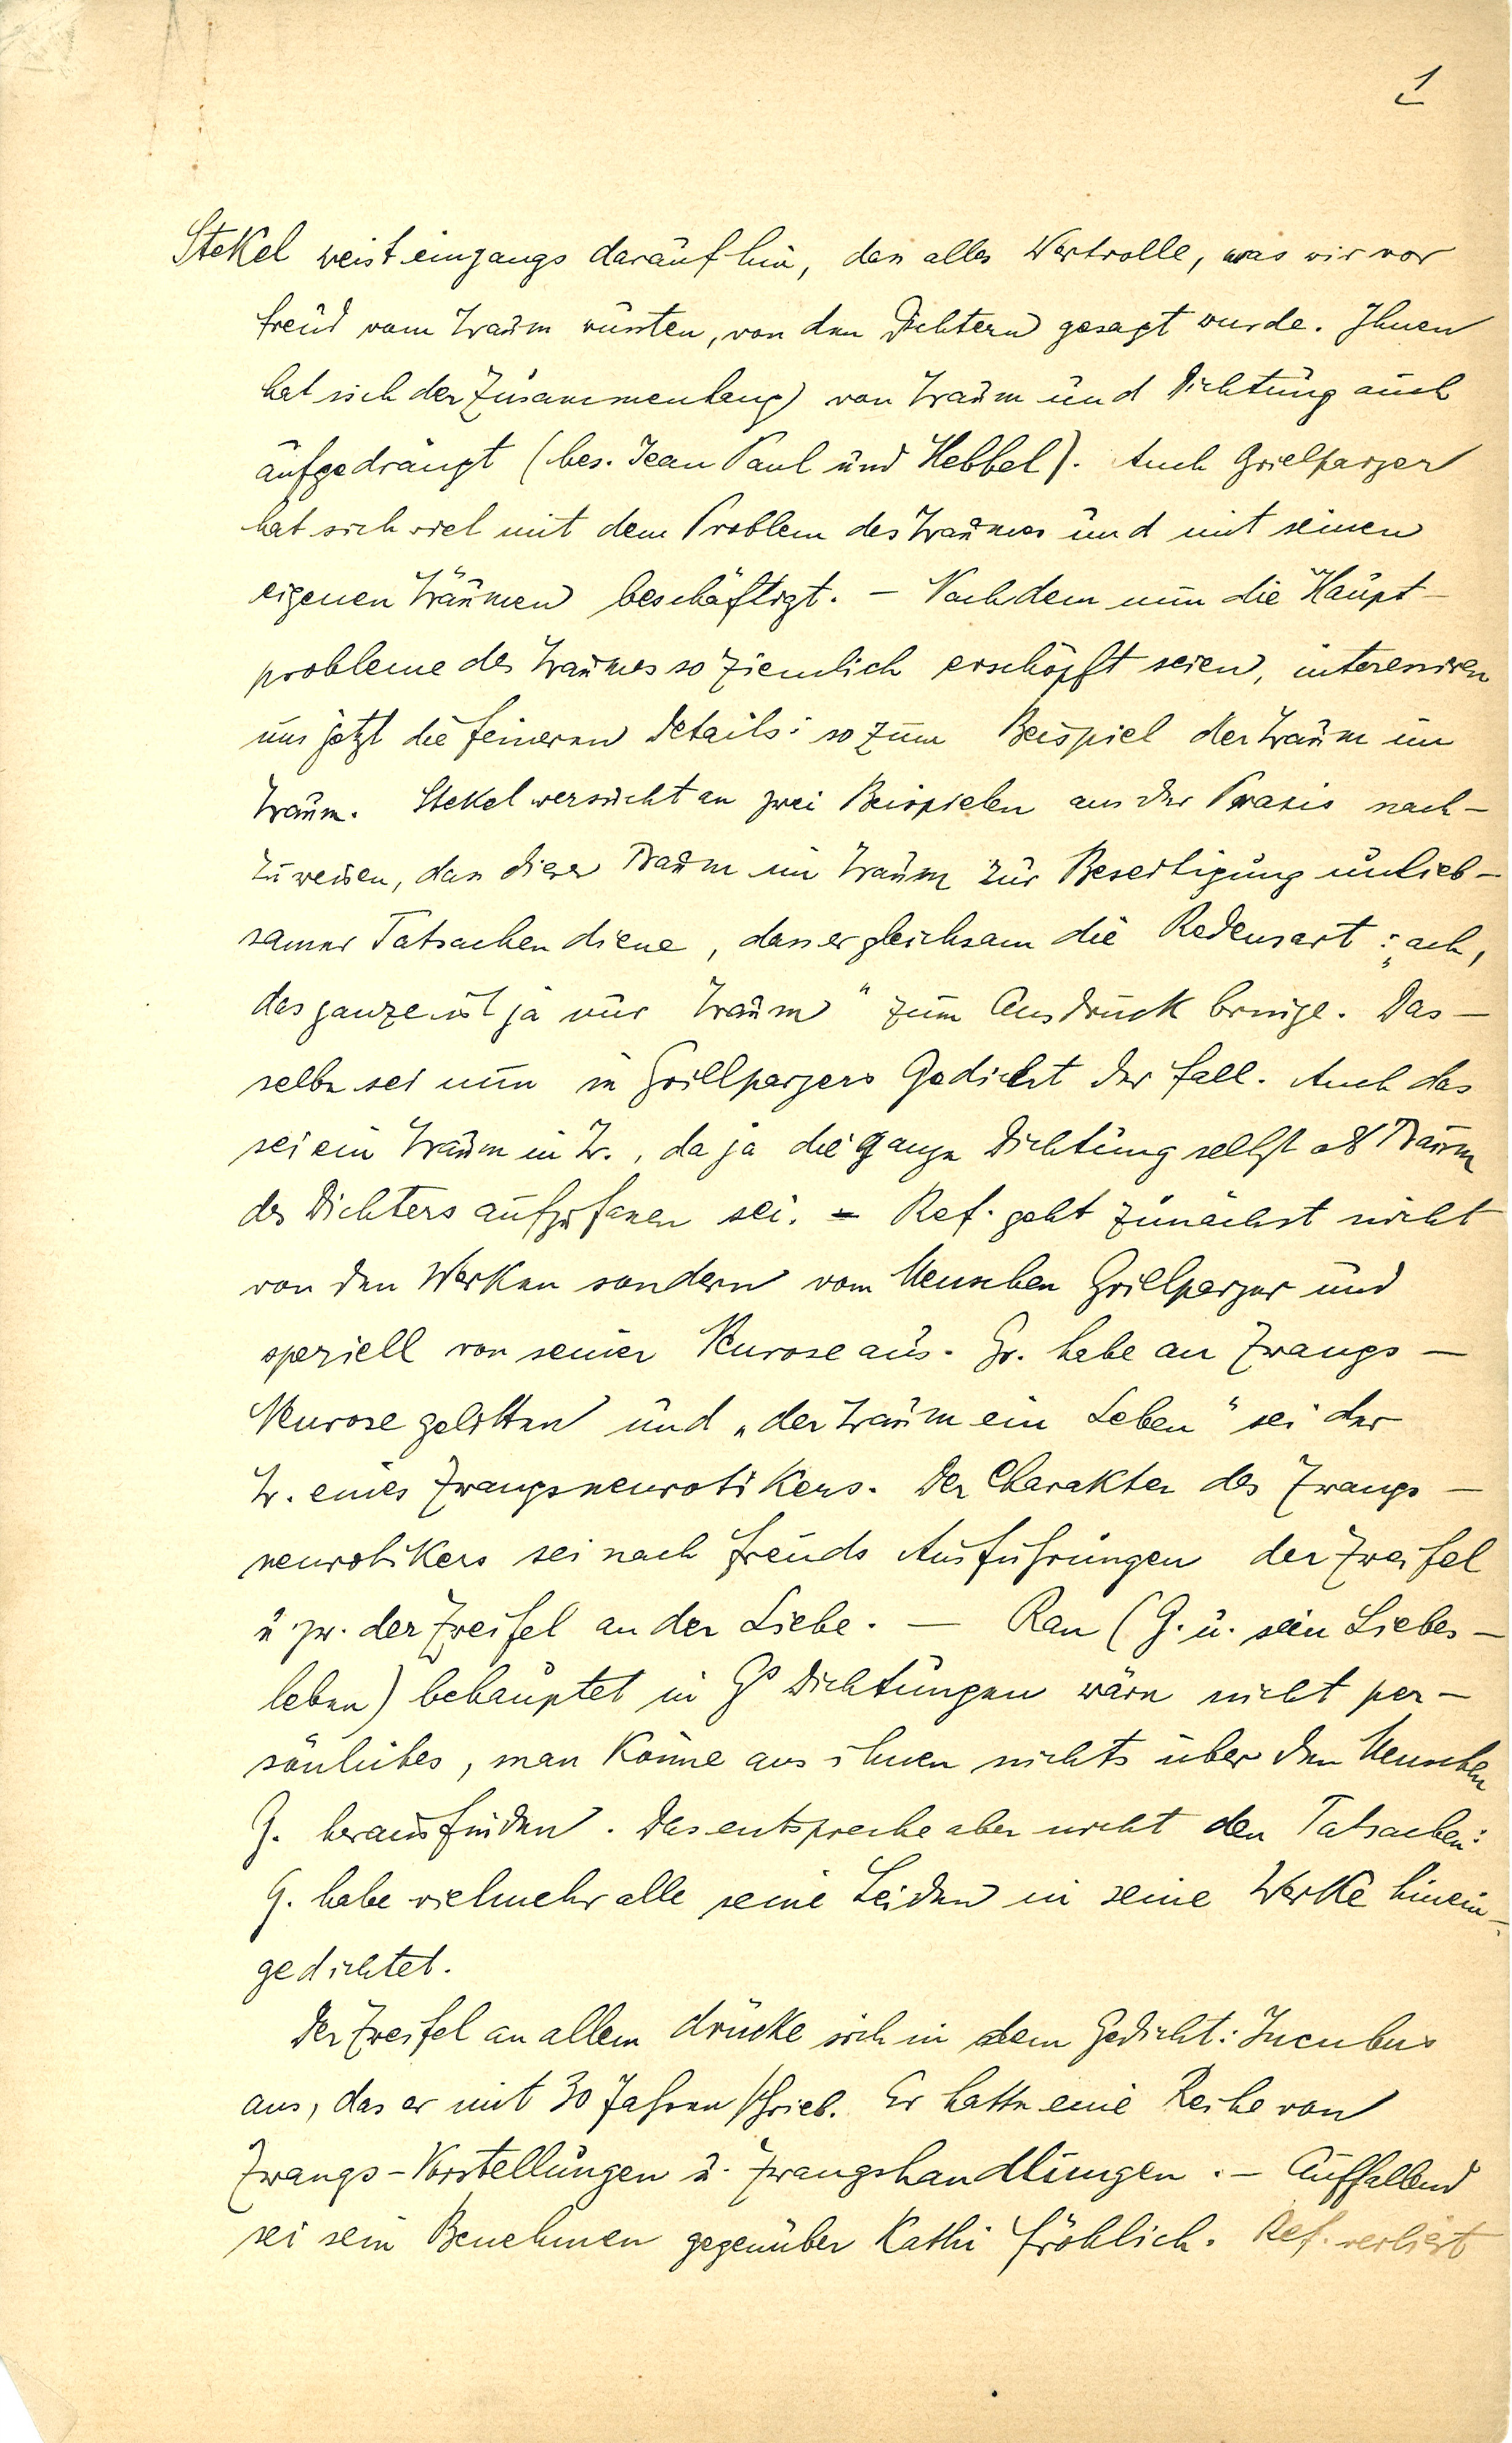 1
Stekel weist eingangs darauf hin, dass alles Wertvolle, was wir vor
Freud vom Traum wüssten, von den Dichtern gesagt wurde. Ihnen
hat sich der Zusammenhang von Traum und Dichtung auch
aufgedrängt (bes. Jean Paul und Hebbel). Auch Grielparzer
hat sich viel mit dem Problem des Traumes und mit seinen
eigenen Träumen beschäftigt. – Nachdem nun die Haupt-
probleme des Traumes so ziemlich erschöpft seien, interessiren
uns jetzt die feineren Details: so zum Beispiel der Traum im
Traum. Stekel versucht an zwei Beispielen aus der Praxis nach-
zuweisen, dass dieser Traum im Traum zur Beseitigung unlieb-
samer Tatsachen diene, dass er gleichsam die Redensart: „ach,
das ganze ist ja nur Traum" zum Ausdruck bringe. Das-
selbe sei nun in Grillparzers Gedicht der Fall. Auch das
sei ein Traum in Tr., da ja die ganze Dichtung selbst als Traum
des Dichters aufzufassen sei. – Ref. geht zunächst nicht
von den Werken sondern vom Menschen Grillparzer und
speziell von seiner Neurose aus. Gr. habe an Zwangs-
Neurose gelitten und „der Traum ein Leben" sei der
Tr. eines Zwangsneurotikers. Der Charakter des Zwangs-
neurotikers sei nach Freuds Ausführungen der Zweifel
u. zw. der Zweifel an der Liebe. – Rau (G. u. sein Liebes-
leben) behauptet in Gs Dichtungen wäre nicht per-
sönliches, man könne aus ihnen nichts über den Menschen
G. herausfinden. Das entspreche aber nicht den Tatsachen:
G. habe vielmehr alle seine Leiden in seine Werke hinein-
gedichtet.
Der Zweifel an allem drücke sich in dem Gedicht: Incubus
aus, das er mit 30 Jahren schrieb. Er hatte eine Reihe von
Zwangs-Vorstellungen u. Zwangshandlungen. – Auffallend
sei sein Benehmen gegenüber Kathi Fröhlich. Ref. verliest